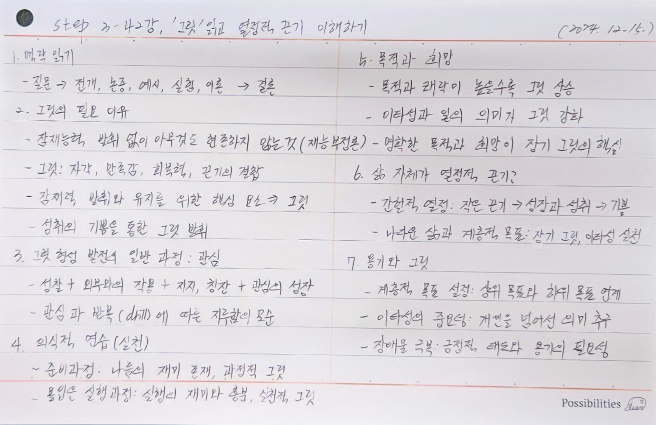 step 3-42강, '그릿' 읽고 열정적 끈기 이해하기
(2024. 12. 15.)
1. 맥락 읽기
- 질문 → 전개, 논증, 예시, 실험, 이론 → 결론
2. 그릿의 필요 이유
- 잠재능력, 발휘 없이 아무것도 현존하지 않는 것 (재능부정론)
- 그릿: 자각, 만족감, 회복력, 끈기의 결합
- 잠재력 발휘와 유지를 위한 핵심 요소 → 그릿
- 성취의 기쁨을 통한 그릿 발휘
3. 그릿 형성 발전의 일반 과정: 관심
- 성찰 + 외부와의 작용 + 지지, 칭찬 + 관심의 성장
- 관심과 반복(drill)에 따는 지루함의 모순
4. 의식적 연습(실천)
- 준비과정: 나름의 재미 존재, 과정적 그릿
- 몰입은 실행과정: 실행의 재미와 흥분, 실천적 그릿
5. 목적과 희망
- 목적과 쾌락이 높을수록 그릿 상승
- 이타성과 일의 의미가 그릿 강화
- 명확한 목적과 희망이 장기 그릿의 핵심
6. 삶 자체가 열정적 끈기?
- 간헐적 열정: 작은 끈기 → 성장과 성취 → 기쁨
- 나다운 삶과 계층적 목표: 장기 그릿, 이타성 실천
7. 용기와 그릿
- 계층적 목표 설정: 상위 목표와 하위 목표 연계
- 이타성의 중요성: 개인을 넘어선 의미 추구
- 장애물 극복: 긍정적 태도와 용기의 필요성
Possibilities